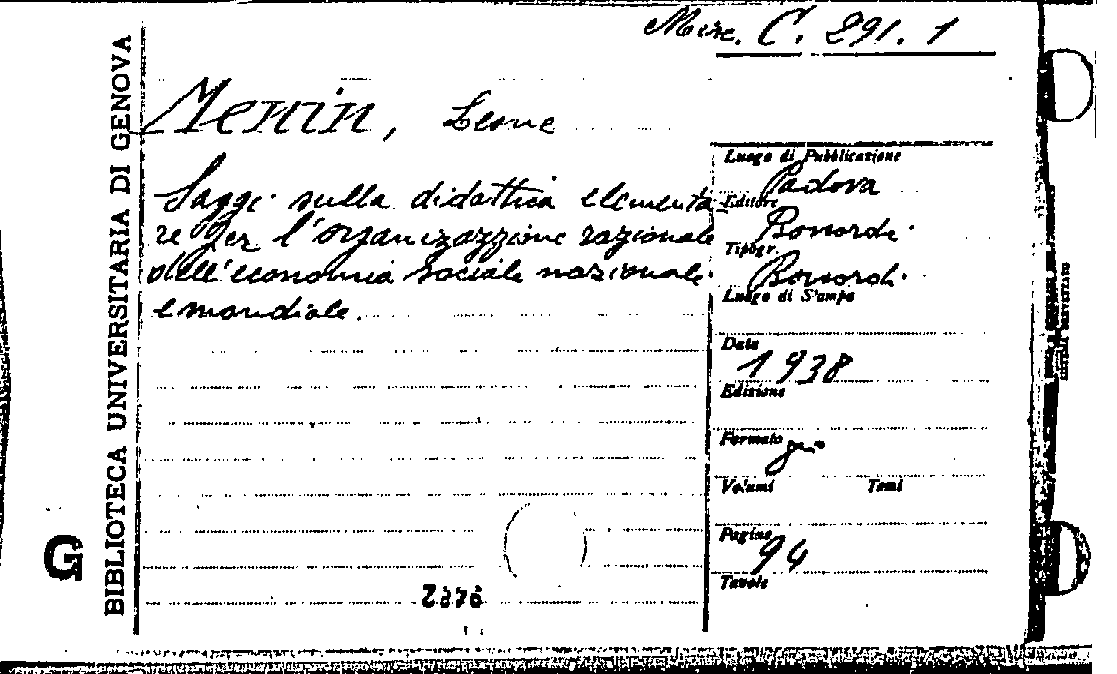 Misc. C. 291. 1
BIBLIOTECA UNIVERSITARIA DI GENOVA
G
Menin, Leone
Saggi sulla didattica elementa-
re per l'organizzazione razionale
dell'economia sociale nazionale
e mondiale.
Luogo di Pubblicazione
Padova
Editore
Bonordi
Tipogr.
Bonordi
Luogo di Stampa
Data
1938
Edizione
Formato
Volumi Tomi
Pagine
94
Tavole